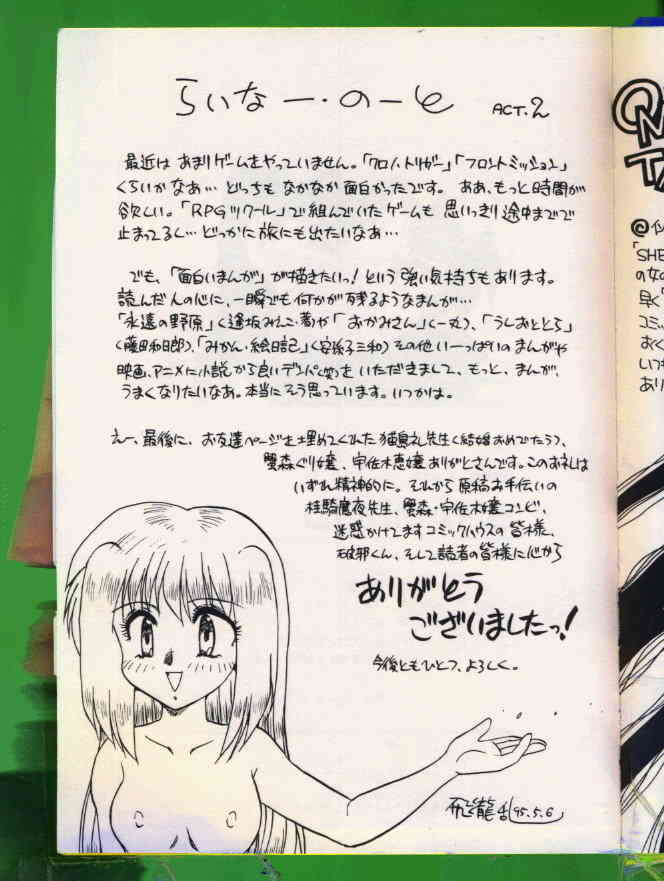 らいなー・のーと ACT.2
最近は あまりゲームをやっていません。「クロノ・トリガー」「フロントミッション」
くらいかなあ… どっちも なかなか面白かったです。 ああ、もっと時間が
欲しい。「RPGツクール」で組んでいたゲームも 思いっきり途中までで
止まってるし… どっかに旅にも出たいなあ…
でも、「面白いまんが」が描きたいっ! という強い気持ちもあります。
読んだ人の心に、一瞬でも何かが残るようなまんが…
「永遠の野原」(逢坂みえこ・著)や「おかみさん」(一丸)、「うしおととら」
(藤田和日郎)、「みかん・絵日記」(安孫子三和)その他い一っぱいのまんがや
映画、アニメに小説から良いデンパ(笑)をいただきまして、もっと、まんが、
うまくなりたいなあ。本当にそう思っています。いつかは。
えー、最後に、お友達ページを埋めてくれた 猫島礼先生(結婚おめでたう)、
蟹森ぐり嬢、宇佐木恵嬢ありがとさんです。このお礼は
いずれ精神的に。それから 原稿お手伝いの
桂騎魔夜先生、蟹森・宇佐木嬢コンビ、
迷惑かけてますコミックハウスの皆様、
破邪くん、そして読者の皆様に心から
ありがとう
ございましたっ!
今後ともひとつ、よろしく。
飛龍乱 '95.5.6
「SHE
の女の
早く
コミッ
おく
いつも
あり